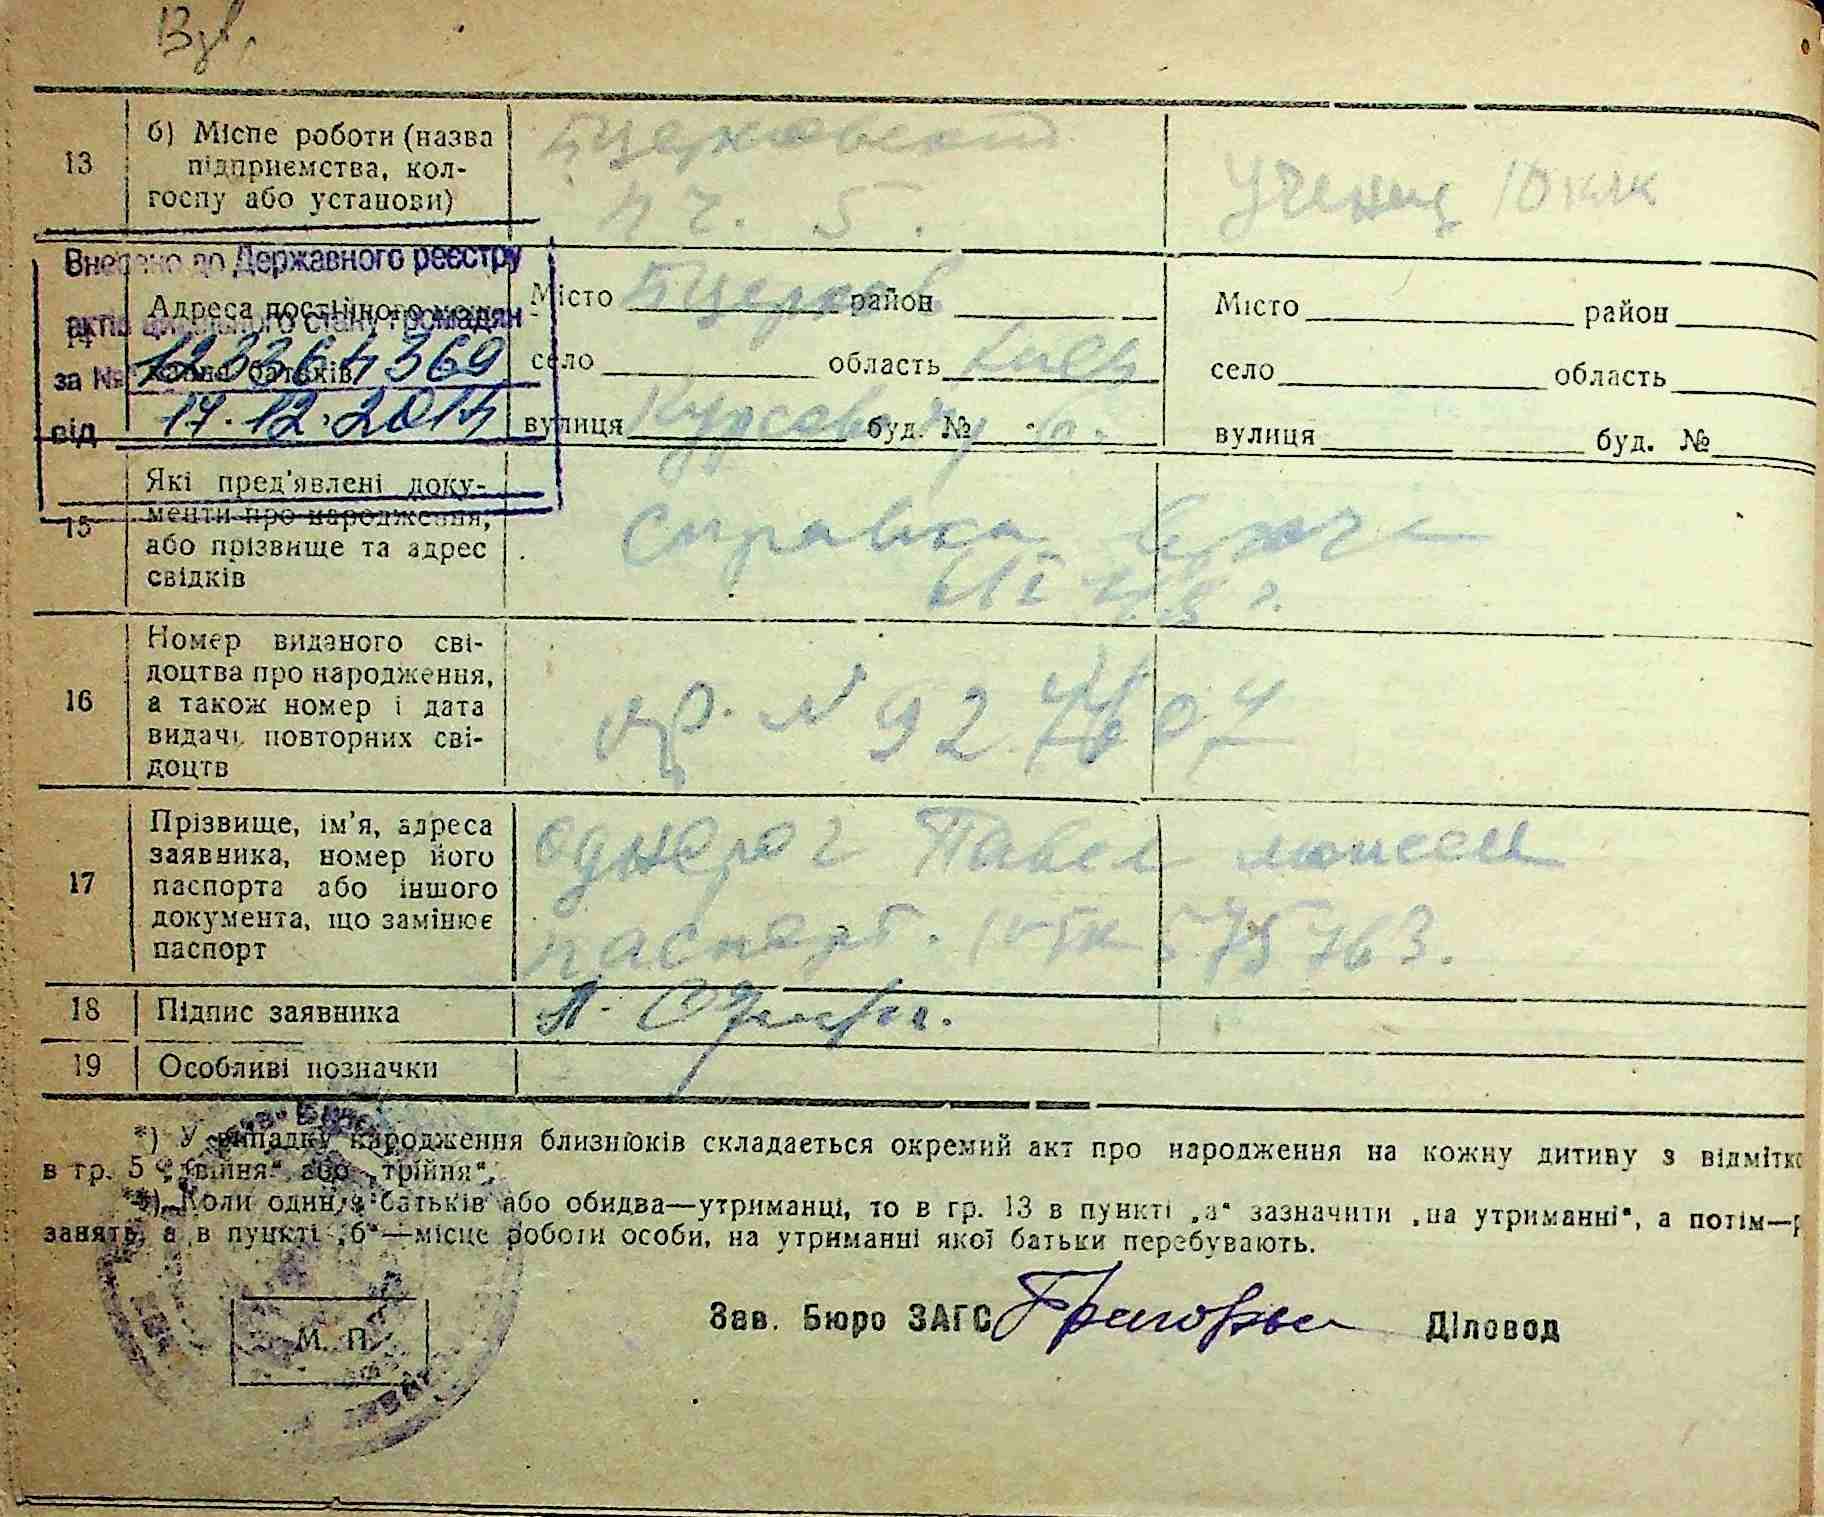 13
б) Місце роботи (назва
підприємства, кол-
госпу або установи)
Бцерковский
ученик 10 клк
Внесено до Державного реєстру
актів цивільного стану громадян
за № 123364369
від 17.12.2014
14
Адреса постійного меш-
кання батьків
Місто Бцерков район
село область Киев
вулиця буд. №
Місто район
село область
вулиця буд. №
15
Які пред'явлені доку-
менти про народження,
або прізвище та адрес
свідків
Справка врача
16
Номер виданого сві-
доцтва про народження,
а також номер і дата
видачі повторних сві-
доцтв
№ 92
17
Прізвище, ім'я, адреса
заявника, номер його
паспорта або іншого
документа, що замінює
паспорт
Однорог Павел
паспорт. 575763.
18
Підпис заявника
П. Однорог.
19
Особливі позначки
*) У випадку народження близнюків складається окремий акт про народження на кожну дитину з відмітко
в гр. 5 „двійня“ або „трійня“.
**) Коли один з батьків або обидва—утриманці, то в гр. 13 в пункті „а“ зазначити „на утриманні“, а потім—р
занять, а в пункті „б“—місце роботи особи, на утриманні якої батьки перебувають.
Зав. Бюро ЗАГС
Діловод
М. П.